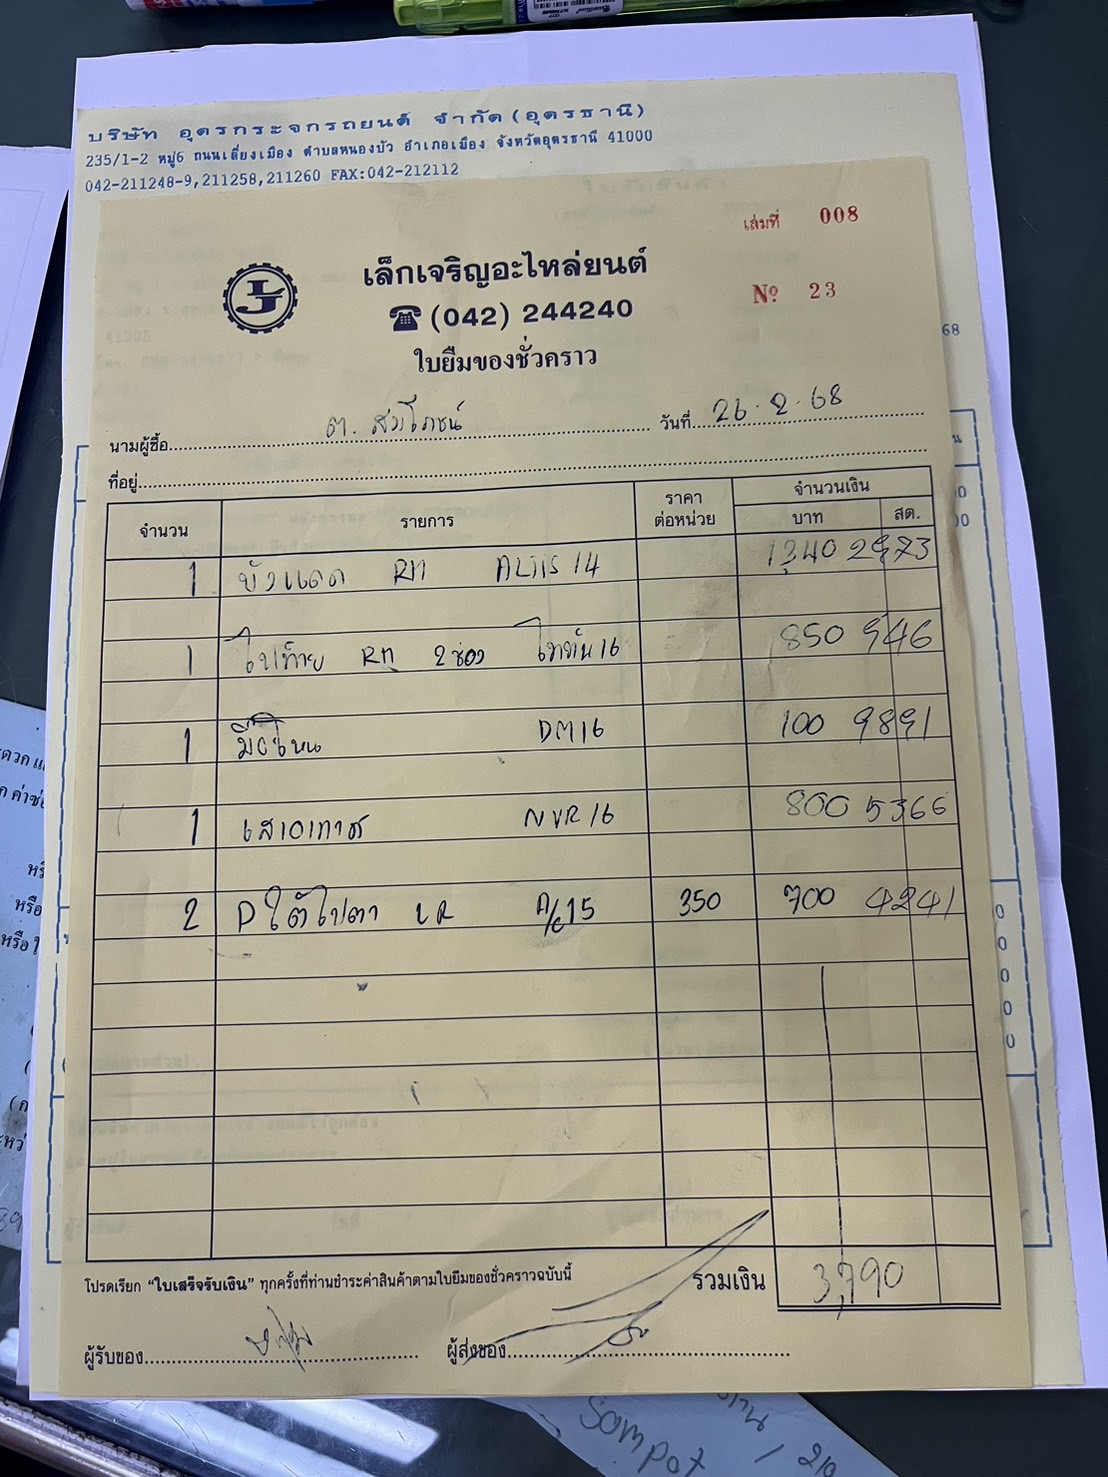 บริษัท อุดรกระจกรถยนต์ จำกัด (อุดรธานี)
235/1-2 หมู่6 ถนนเลี่ยงเมือง ตำบลหนองบัว อำเภอเมือง จังหวัดอุดรธานี 41000
042-211248-9,211258,211260 FAX:042-212112
เล่มที่ 008
เล็กเจริญอะไหล่ยนต์
(042) 244240
№ 23
ใบยืมของชั่วคราว
นามผู้ซื้อ ต. สมโภชน์ วันที่ 26.2.68
ที่อยู่
จำนวน รายการ ราคาต่อหน่วย จำนวนเงิน
บาท สต.
1 บังแดด RH ALTIS 14 1340 2973
1 ไฟท้าย RH 2ช่อง ไททัน16 850 546
1 มือโหน DM16 100 9891
1 เสาอากาศ NVR16 800 5366
2 ใต้ไฟตา LR A/C15 350 700 4241
โปรดเรียก "ใบเสร็จรับเงิน" ทุกครั้งที่ท่านชำระค่าสินค้าตามใบยืมของชั่วคราวฉบับนี้
รวมเงิน 3,790
ผู้รับของ ผู้ส่งของ
Sompot